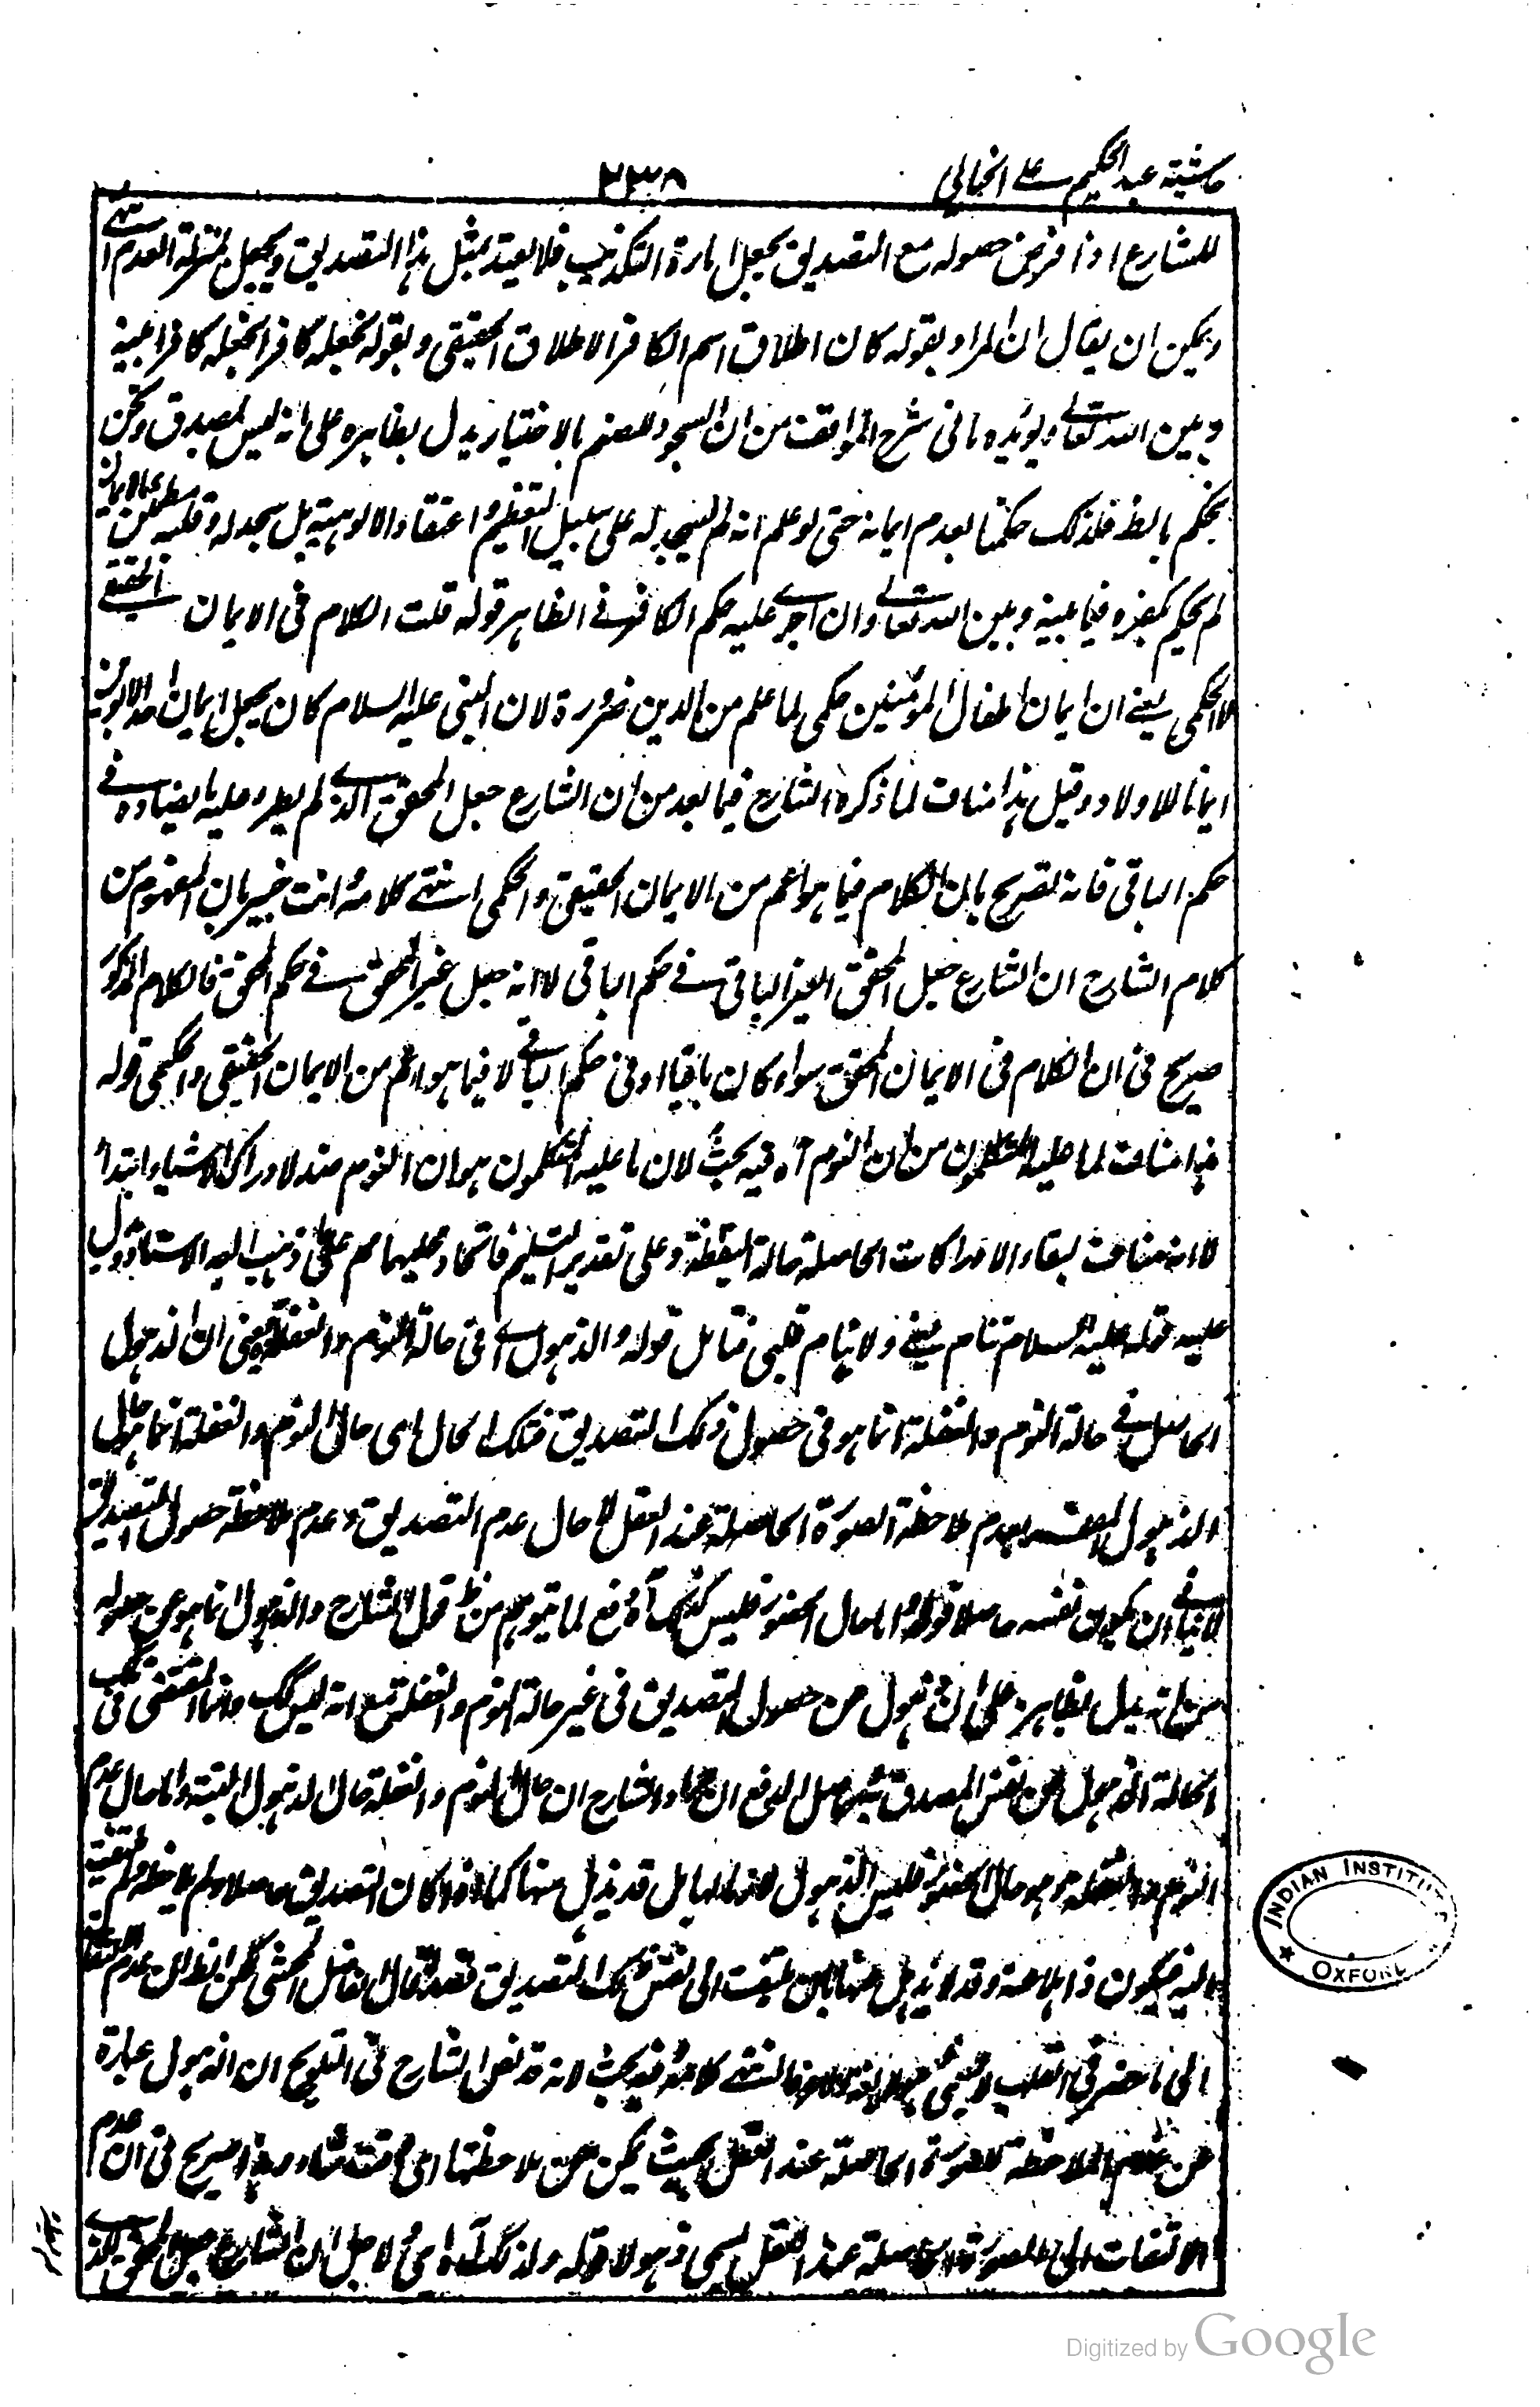 حاشية عبد الحكيم على الخيالي
٢٣٨
للشارع اذا فرض حصوله مع التصديق يجعل امارة التكذيب فلا يعتد بمثل هذا التصديق ويجعل بمنزلة العدم انتهى
ويمكن ان يقال ان المراد بقوله كان اطلاق اسم الكافر الاطلاق الحقيقي وبقوله نجعله كافرا نجعله كافرا بينه
وبين الله تعالى ويؤيده ما في شرح المواقف من ان السجود للصنم بالاختيار يدل بظاهره على انه ليس بمصدق ونحن
نحكم بالظ فلذلك حكمنا بعدم ايمانه حتى لو علم انه لم يسجد له على سبيل التعظيم واعتقاد الالوهية بل سجد له وقلبه مطمئن بالايمان
لم يحكم بكفره فيما بينه وبين الله تعالى وان اجرى عليه حكم الكافر في الظاهر قوله قلت الكلام في الايمان الحقيقي
لا الحكمي يعني ان ايمان اطفال المؤمنين حكمي لما علم من الدين ضرورة لان النبي عليه السلام كان يجعل ايمان احد الابوين
ايمانا للاولاد وقيل هذا مناف لما ذكره الشارح فيما بعد من ان الشارع جعل المحقق الذي لم يطرء عليه ما يضاده في
حكم الباقي فانه تصريح بان الكلام فيما هو اعم من الايمان الحقيقي والحكمي انتهى كلامه انت خبير بان المفهوم من
كلام الشارح ان الشارع جعل المحقق الغير الباقي في حكم الباقي لا انه جعل غير المحقق في حكم المحقق فالكلام المذكور
صريح في ان الكلام في الايمان المحقق سواء كان باقيا او في حكم الباقي لا فيما هو اعم من الايمان الحقيقي والحكمي قوله
هذا مناف لما عليه المتكلمون من ان النوم آه فيه بحث لان ما عليه المتكلمون هو ان النوم ضد لادراك الاشياء ابتداء
لا انه مناف لبقاء الادراكات الحاصلة حالة اليقظة وعلى تقدير التسليم فاتحاد محليهما مم على ما ذهب اليه الاستاذ ويدل
عليه قوله عليه السلام تنام عيني ولا ينام قلبي فتامل قوله والذهول اي في حالة النوم والغفلة يعني ان الذهول
الحاصل في حالة النوم والغفلة انما هو في حصول ذلك التصديق فتلك الحال اي حال النوم والغفلة انما هي حال
الذهول بعدم ملاحظة الصورة الحاصلة عند العقل لا حال عدم التصديق وعدم ملاحظة حصول التصديق
لا ينافي ان يكون نفسه حاصلا قوله واما حال الحضور فليس كذلك آه دفع لما يتوهم من ظ قول الشارح والذهول انما هو عن حصوله
من انه يدل بظاهره على ان الذهول عن حصول التصديق في غير حالة النوم والغفلة مع انه ليس كك وانما المتحقق في تلك
الحالة الذهول عن نفس المصدق به وحاصل الدفع ان مراد الشارح ان حال النوم والغفلة حال الذهول البتة واما حال عدم
النوم والغفلة وهو حال الحضور فليس الذهول لازما لها بل قد يذهل عنها كما اذا كان التصديق حاصلا ولم يلاحظه ولم يلتفت
اليه فيكون ذاهلا عنه وقد لا يذهل عنها بان يلتفت الى نفس ذلك التصديق قصدا قال الفاضل المحشي لكن الظ ان عدم الالتفات
الى ما حضر في القلب لا يسمى ذهولا انتهى كلامه فيه بحث لانه قد نص الشارح في التلويح ان الذهول عبارة
عن عدم الملاحظة للصورة الحاصلة عند العقل بحيث يمكن من ملاحظتها اي وقت شاء وهذا صريح في ان عدم
الالتفات الى الصورة الحاصلة عند العقل يسمى ذهولا قوله ولذلك آه اي لاجل ان الشارع جعل المحقق الذي
INDIAN INSTITUTE OXFORD
Digitized by Google